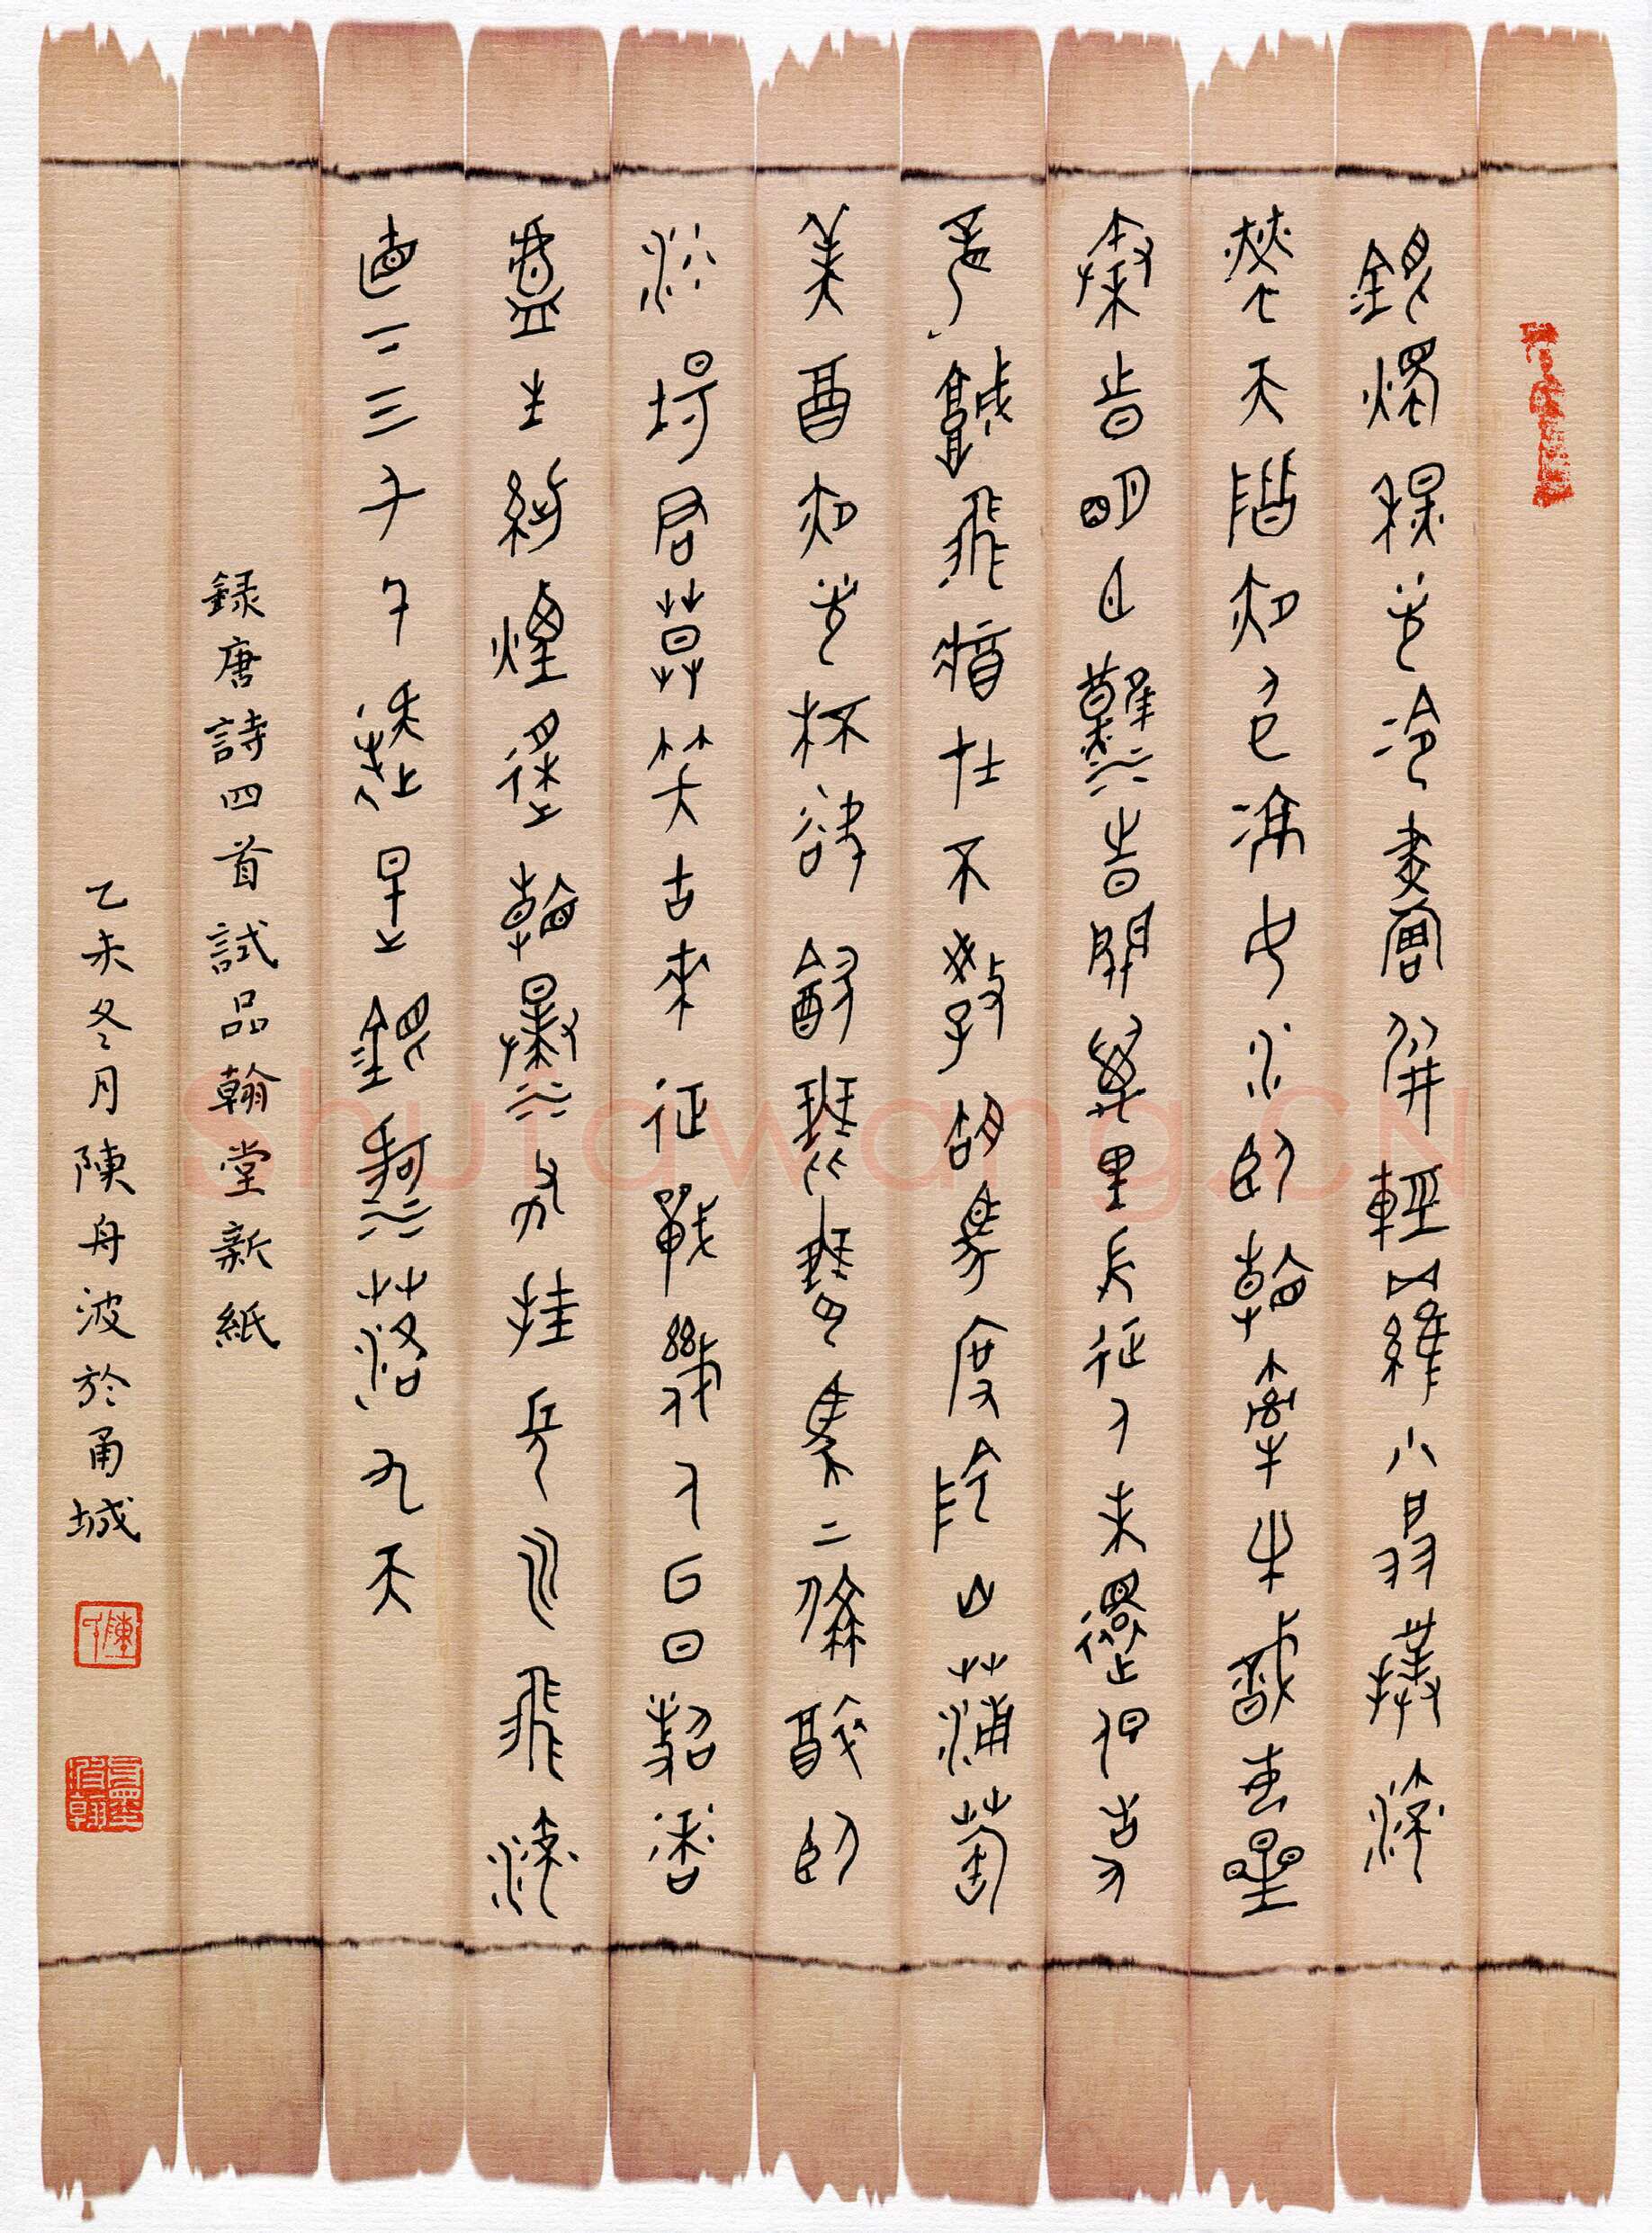 銀燭秋光冷畫屏輕羅小扇撲流
螢天階夜色涼如水臥看牽牛織女星
秦時明月漢時關萬里長征人未還但使
龍城飛將在不教胡馬度陰山葡萄
美酒夜光杯欲飲琵琶馬上催醉臥
沙場君莫笑古來征戰幾人回日照香
爐生紫煙遙看瀑布掛前川飛流
直下三千尺疑是銀河落九天
録唐詩四首試品翰堂新紙
乙未冬月陳舟波於甬城
Shufawang.CN